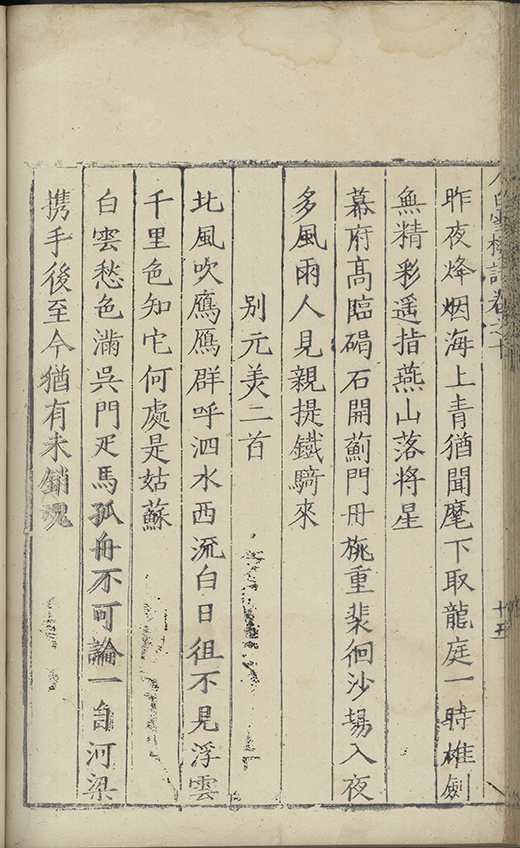 白雪樓詩卷之十
十五
昨夜烽烟海上青猶聞麾下取龍庭一時雄劍
無精彩遥指燕山落將星
幕府高臨碣石開薊門丹旐重裴徊沙場入夜
多風雨人見親提鐵騎來
别元美二首
北風吹鴈鴈群呼泗水西流白日徂不見浮雲
千里色知它何處是姑蘇
白雲愁色滿吳門疋馬孤舟不可論一自河梁
携手後至今猶有未銷魂